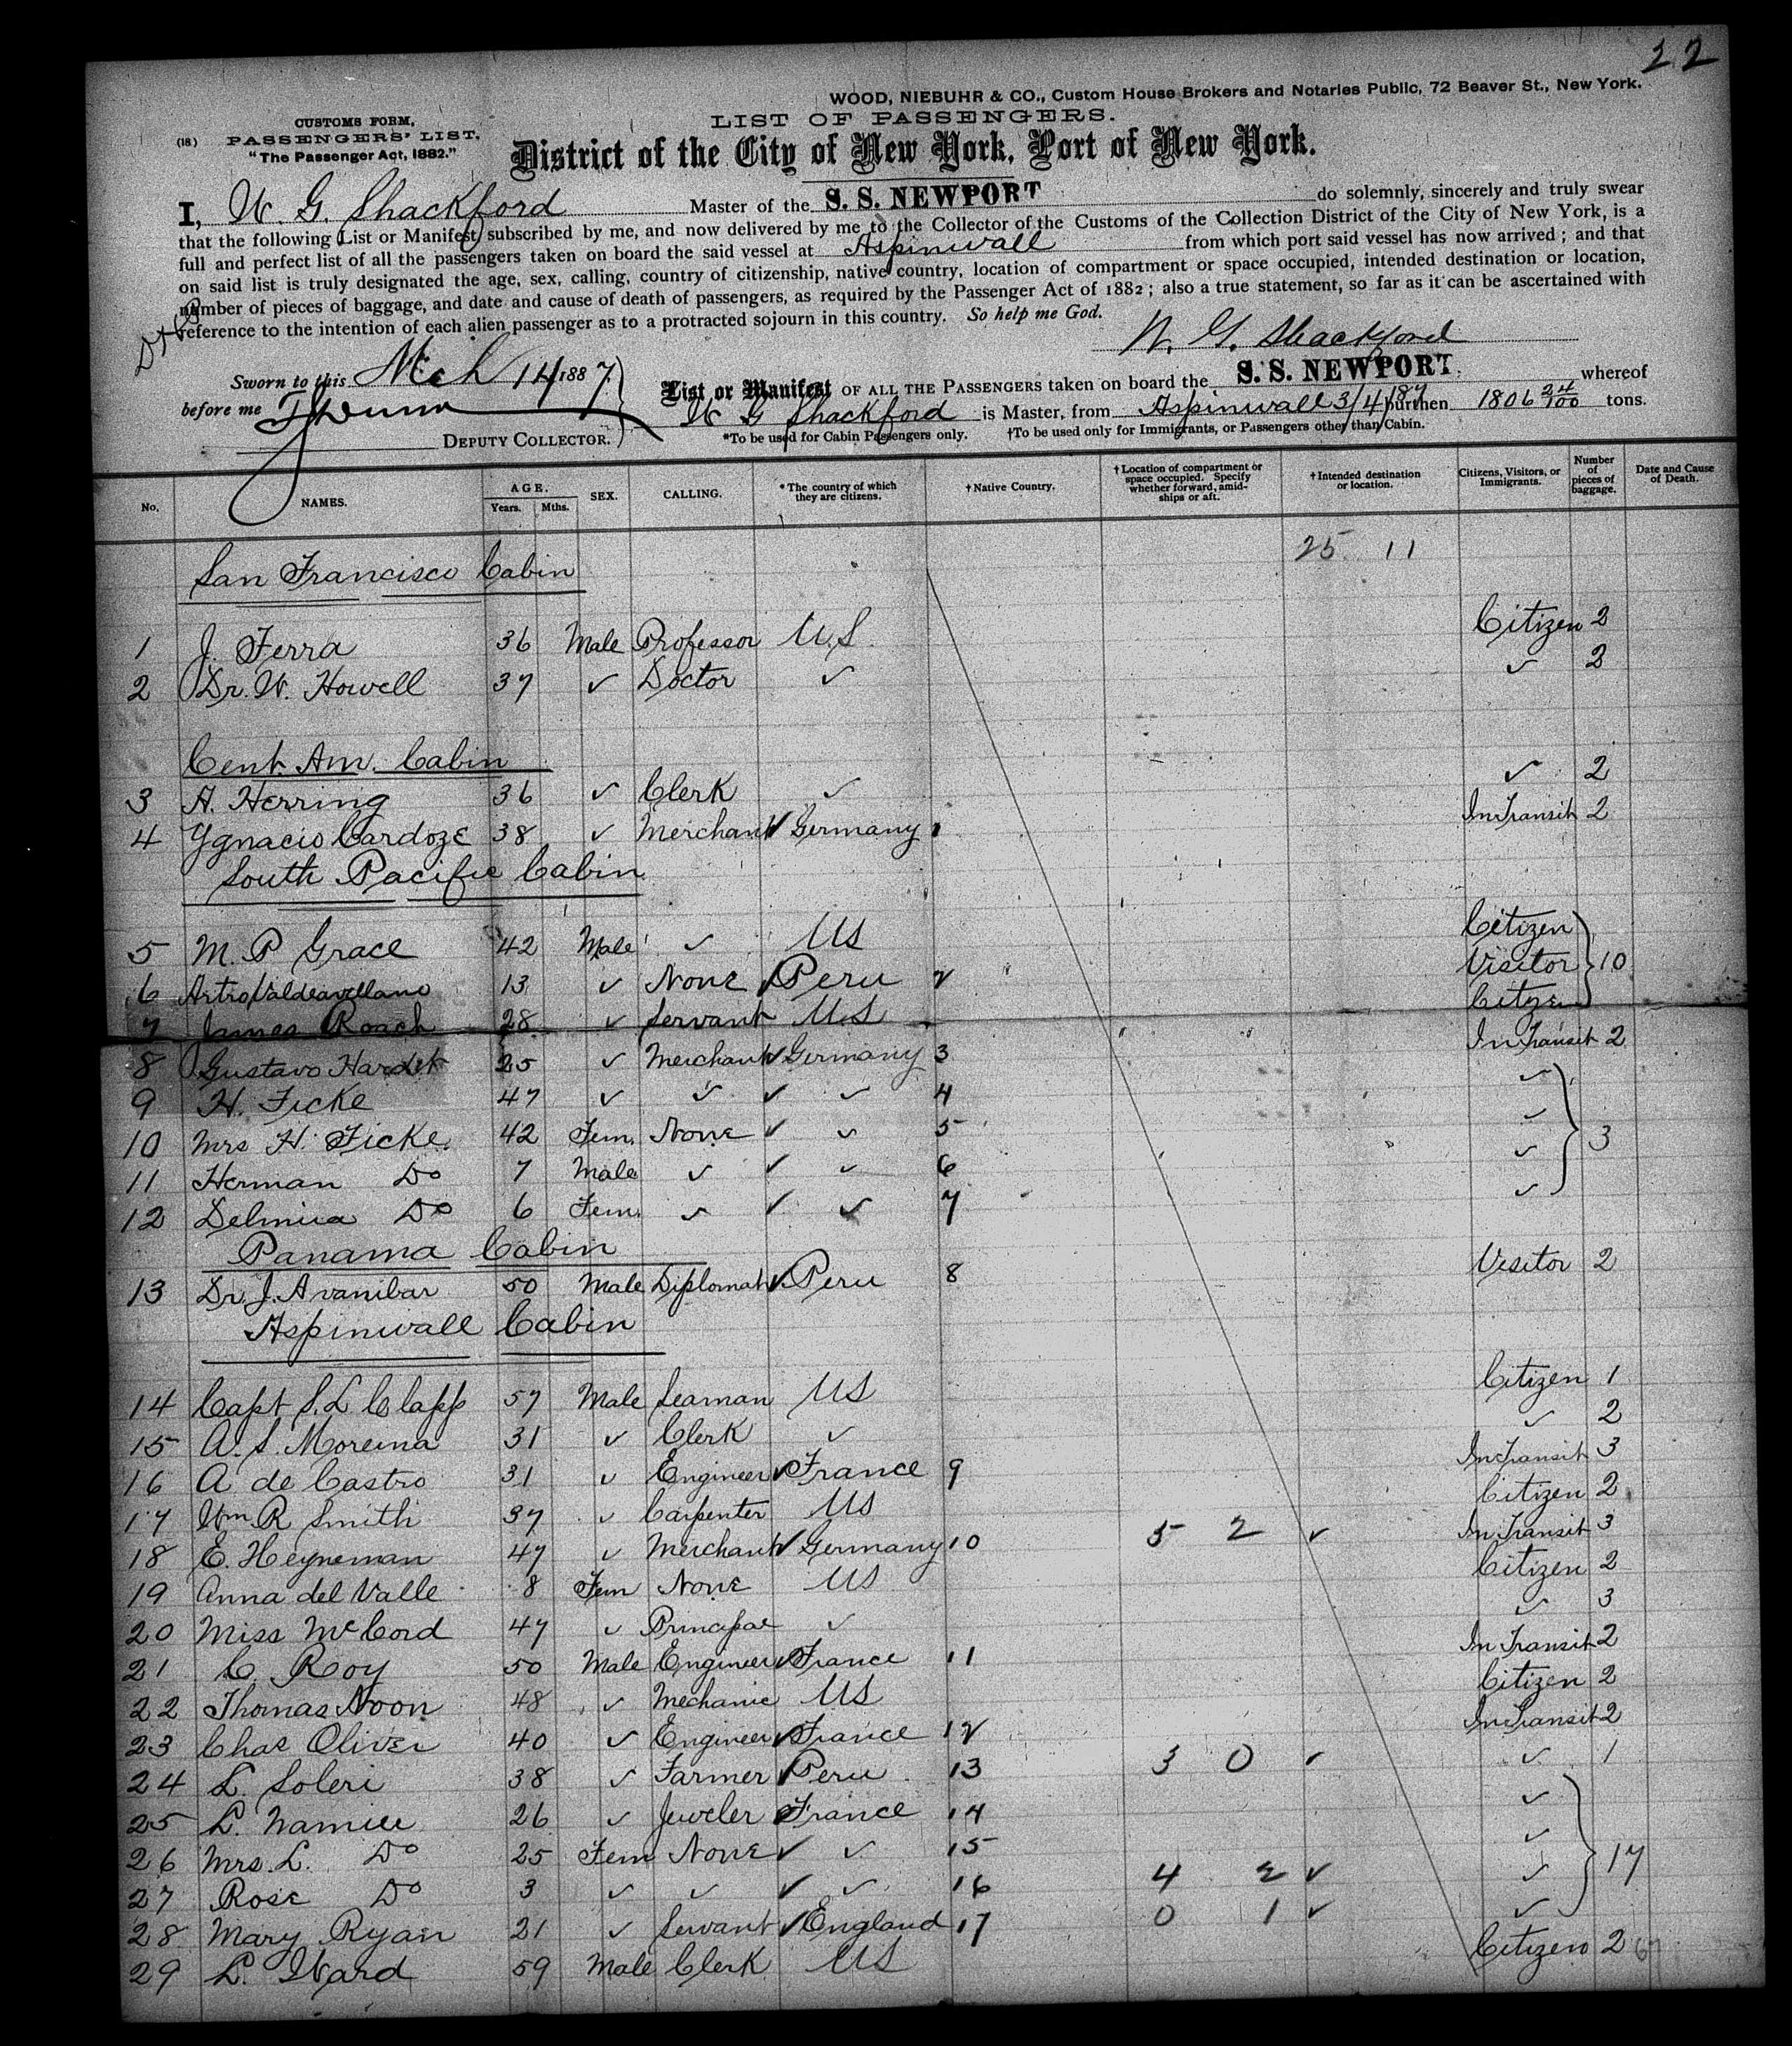 22
WOOD, NIEBUHR & CO., Custom House Brokers and Notaries Public, 72 Beaver St., New York.
(18)
CUSTOMS FORM,
PASSENGERS' LIST.
"The Passenger Act, 1882."
LIST OF PASSENGERS.
District of the City of New York, Port of New York.
I, W. G. Shackford Master of the S. S. NEWPORT do solemnly, sincerely and truly swear
that the following List or Manifest, subscribed by me, and now delivered by me to the Collector of the Customs of the Collection District of the City of New York, is a
full and perfect list of all the passengers taken on board the said vessel at Aspinwall from which port said vessel has now arrived; and that
on said list is truly designated the age, sex, calling, country of citizenship, native country, location of compartment or space occupied, intended destination or location,
number of pieces of baggage, and date and cause of death of passengers, as required by the Passenger Act of 1882; also a true statement, so far as it can be ascertained with
reference to the intention of each alien passenger as to a protracted sojourn in this country. So help me God.
W. G. Shackford
Sworn to this Mch 14 1887
before me
DEPUTY COLLECTOR.
List or Manifest OF ALL THE PASSENGERS taken on board the S. S. NEWPORT. whereof
W G Shackford is Master, from Aspinwall 3/4/87 burthen 1806 24/100 tons.
*To be used for Cabin Passengers only. †To be used only for Immigrants, or Passengers other than Cabin.
No. NAMES. AGE. Years. Mths. SEX. CALLING. *The country of which they are citizens. †Native Country. †Location of compartment or space occupied. Specify whether forward, amidships or aft. †Intended destination or location. Citizens, Visitors, or Immigrants. Number of pieces of baggage. Date and Cause of Death.
25 11
San Francisco Cabin
1 J. Ferra 36 Male Professor U.S Citizen 2
2 Dr. W. Howell 37 ✓ Doctor ✓ ✓ 2
Cent. Am. Cabin
3 A. Herring 36 ✓ Clerk ✓ ✓ 2
4 Ygnacio Cardoze 38 ✓ Merchant ✓ Germany 1 In Transit 2
South Pacific Cabin
5 M. P Grace 42 Male ✓ US Citizen
6 Artro Valdeavellano 13 ✓ None ✓ Peru 2 Visitor 10
7 James Roach 28 ✓ Servant U.S Citizen
8 Gustavo Hardt 25 ✓ Merchant ✓ Germany 3 In Transit 2
9 H. Ficke 47 ✓ ✓ ✓ ✓ 4 ✓
10 Mrs H. Ficke 42 Fem. None ✓ ✓ 5 ✓ 3
11 Herman Do 7 Male ✓ ✓ ✓ 6 ✓
12 Delmira Do 6 Fem. ✓ ✓ ✓ 7 ✓
Panama Cabin
13 Dr J. Aranibar 50 Male Diplomat ✓ Peru 8 Visitor 2
Aspinwall Cabin
14 Capt S. L. Clapp 57 Male Seaman US Citizen 1
15 A. S. Moreina 31 ✓ Clerk ✓ ✓ 2
16 A de Castro 31 ✓ Engineer ✓ France 9 In Transit 3
17 Wm R Smith 37 ✓ Carpenter US Citizen 2
18 E. Heyneman 47 ✓ Merchant ✓ Germany 10 5 2 ✓ In Transit 3
19 Anna del Valle 8 Fem None US Citizen 2
20 Miss McCord 47 ✓ Principal ✓ ✓ 3
21 C. Roy 50 Male Engineer ✓ France 11 In Transit 2
22 Thomas Noon 48 ✓ Mechanic US Citizen 2
23 Chas Oliver 40 ✓ Engineer ✓ France 12 In Transit 2
24 L. Soleri 38 ✓ Farmer ✓ Peru 13 3 0 ✓ ✓ 1
25 L. 26 ✓ Jeweler ✓ France 14 ✓
26 Mrs. L. Do 25 Fem None ✓ ✓ 15 ✓ 17
27 Rose Do 3 ✓ ✓ ✓ ✓ 16 4 2 ✓ ✓
28 Mary Ryan 21 ✓ Servant ✓ England 17 0 1 ✓ ✓
29 L. Ward 59 Male Clerk US Citizen 2